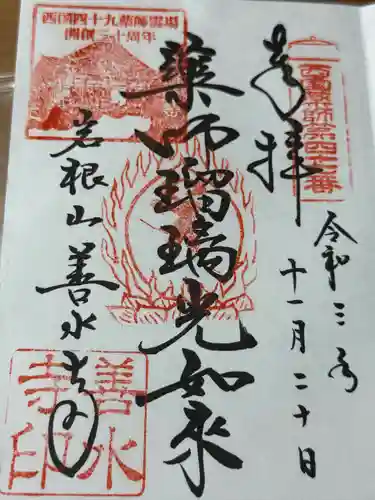 奉拝
西國薬師第四十七番
令和三年
十一月二十日
薬師瑠璃光如来
西国四十九薬師霊場
開創三十周年
岩根山善水寺
善水
寺印